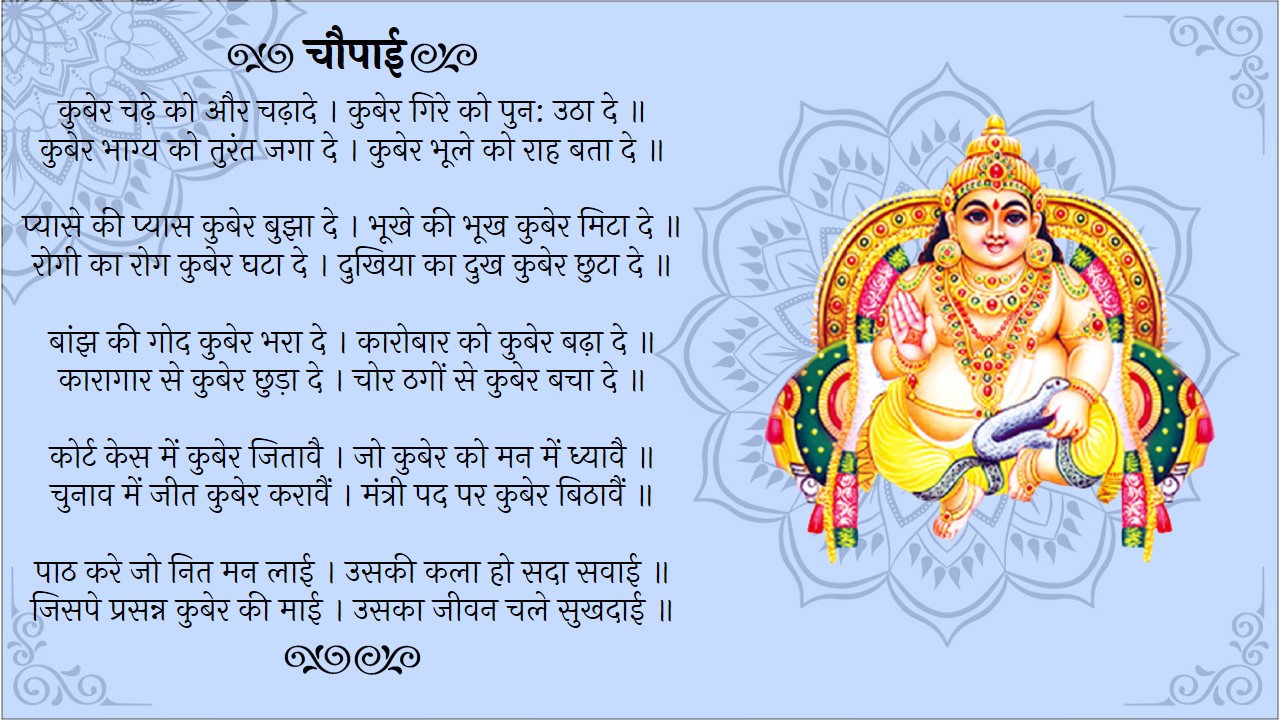 चौपाई
कुबेर चढ़े को और चढ़ादे । कुबेर गिरे को पुन: उठा दे ॥
कुबेर भाग्य को तुरंत जगा दे । कुबेर भूले को राह बता दे ॥
प्यासे की प्यास कुबेर बुझा दे । भूखे की भूख कुबेर मिटा दे ॥
रोगी का रोग कुबेर घटा दे । दुखिया का दुख कुबेर छुटा दे ॥
बांझ की गोद कुबेर भरा दे । कारोबार को कुबेर बढ़ा दे ॥
कारागार से कुबेर छुड़ा दे । चोर ठगों से कुबेर बचा दे ॥
कोर्ट केस में कुबेर जितावै । जो कुबेर को मन में ध्यावै ॥
चुनाव में जीत कुबेर करावैं । मंत्री पद पर कुबेर बिठावैं ॥
पाठ करे जो नित मन लाई । उसकी कला हो सदा सवाई ॥
जिसपे प्रसन्न कुबेर की माई । उसका जीवन चले सुखदाई ॥